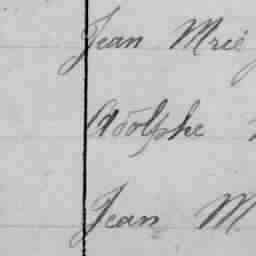 Jean Mrie
Adolphe
Jean M